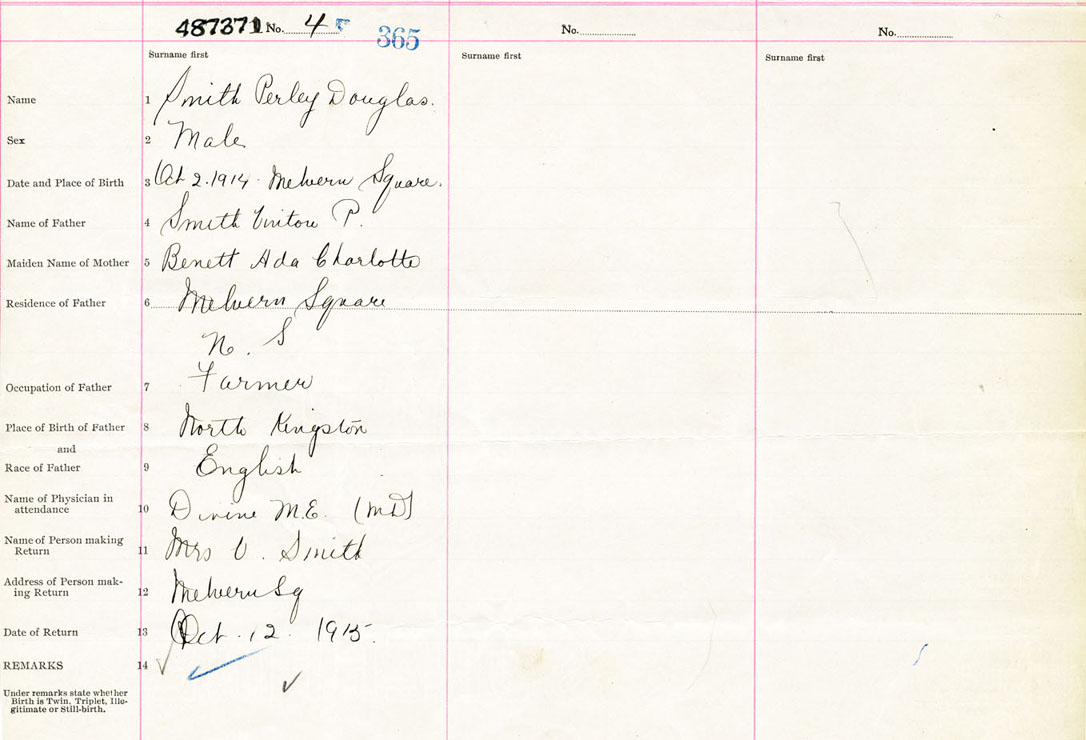 487371 No. 4 365 No. No.
Surname first Surname first Surname first
Name 1 Smith Perley Douglas.
Sex 2 Male
Date and Place of Birth 3 Oct 2. 1914 - Melvern Square.
Name of Father 4 Smith Vinton P.
Maiden Name of Mother 5 Benett Ada Charlotte
Residence of Father 6 Melvern Square
N. S
Occupation of Father 7 Farmer
Place of Birth of Father 8 North Kingston
and
Race of Father 9 English
Name of Physician in
attendance 10 Divine M.E. (MD)
Name of Person making
Return 11 Mrs V. Smith
Address of Person mak-
ing Return 12 Melvern Sq
Date of Return 13 Oct. 12. 1915.
REMARKS 14
Under remarks state whether
Birth is Twin, Triplet, Ille-
gitimate or Still-birth.